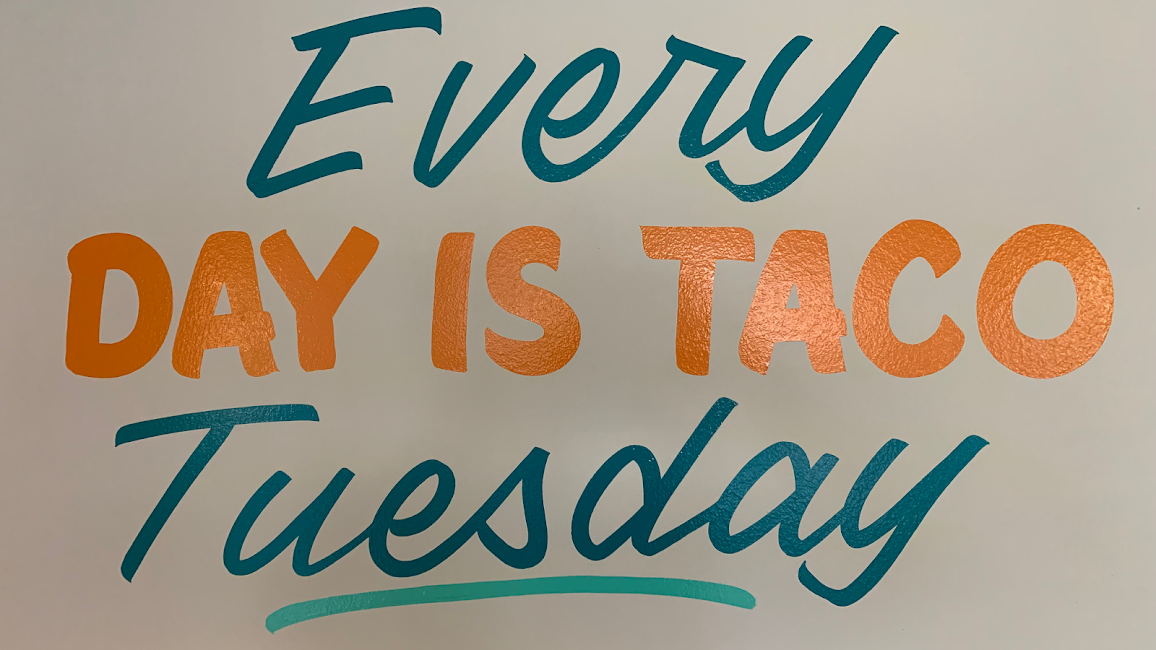 Every
DAY IS TACO
Tuesday